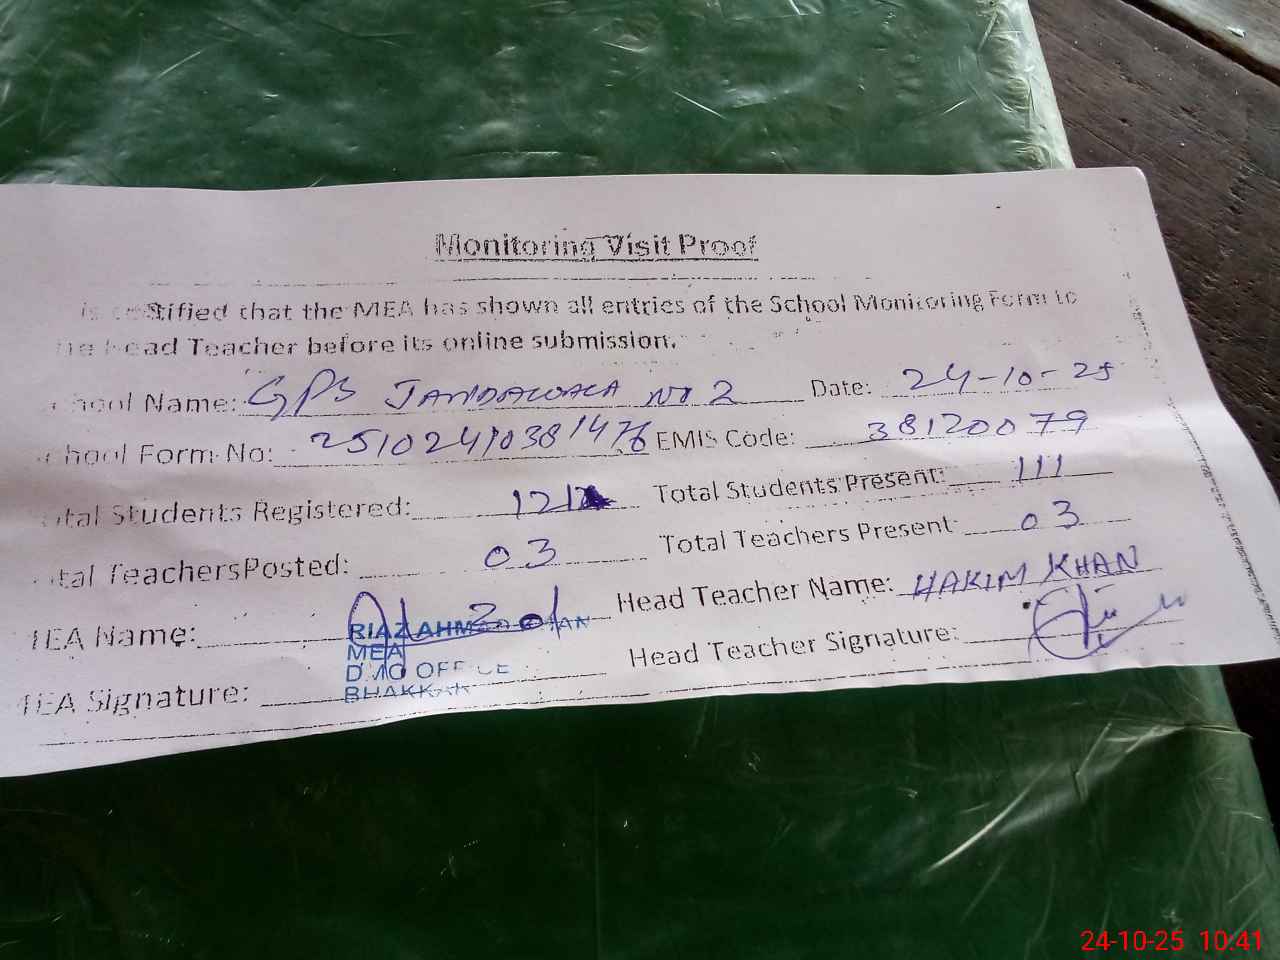 Monitoring Visit Proof
is certified that the MEA has shown all entries of the School Monitoring Form to
he Head Teacher before its online submission.
chool Name: GPS JANDAWALA No 2 Date: 24-10-25
chool Form No: EMIS Code: 38120079
otal Students Registered: Total Students Present: 111
tal Teachers Posted: 03 Total Teachers Present 03
MEA Name: Head Teacher Name: HAKIM KHAN
RIAZ AHMAD KHAN
MEA
DMO OFFICE
BHAKKAR
MEA Signature: Head Teacher Signature:
24-10-25 10:41